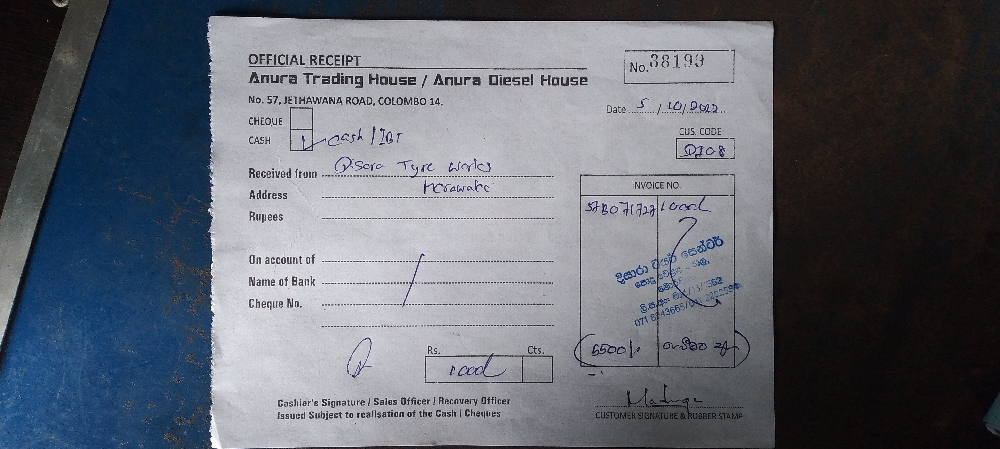 OFFICIAL RECEIPT
No. 38199
Anura Trading House / Anura Diesel House
No. 57, JETHAWANA ROAD, COLOMBO 14.
Date 5 / 10 / 2022
CHEQUE
CASH cash / IBT
CUS. CODE
DI08
Received from Disara Tyre works
Address Morawake
Rupees
INVOICE NO.
දිසාරා ටයර් සෙන්ටර්
On account of
Name of Bank
Cheque No.
Rs. Cts.
5500/-
Cashier's Signature / Sales Officer / Recovery Officer
Issued Subject to realisation of the Cash / Cheques
CUSTOMER SIGNATURE & RUBBER STAMP